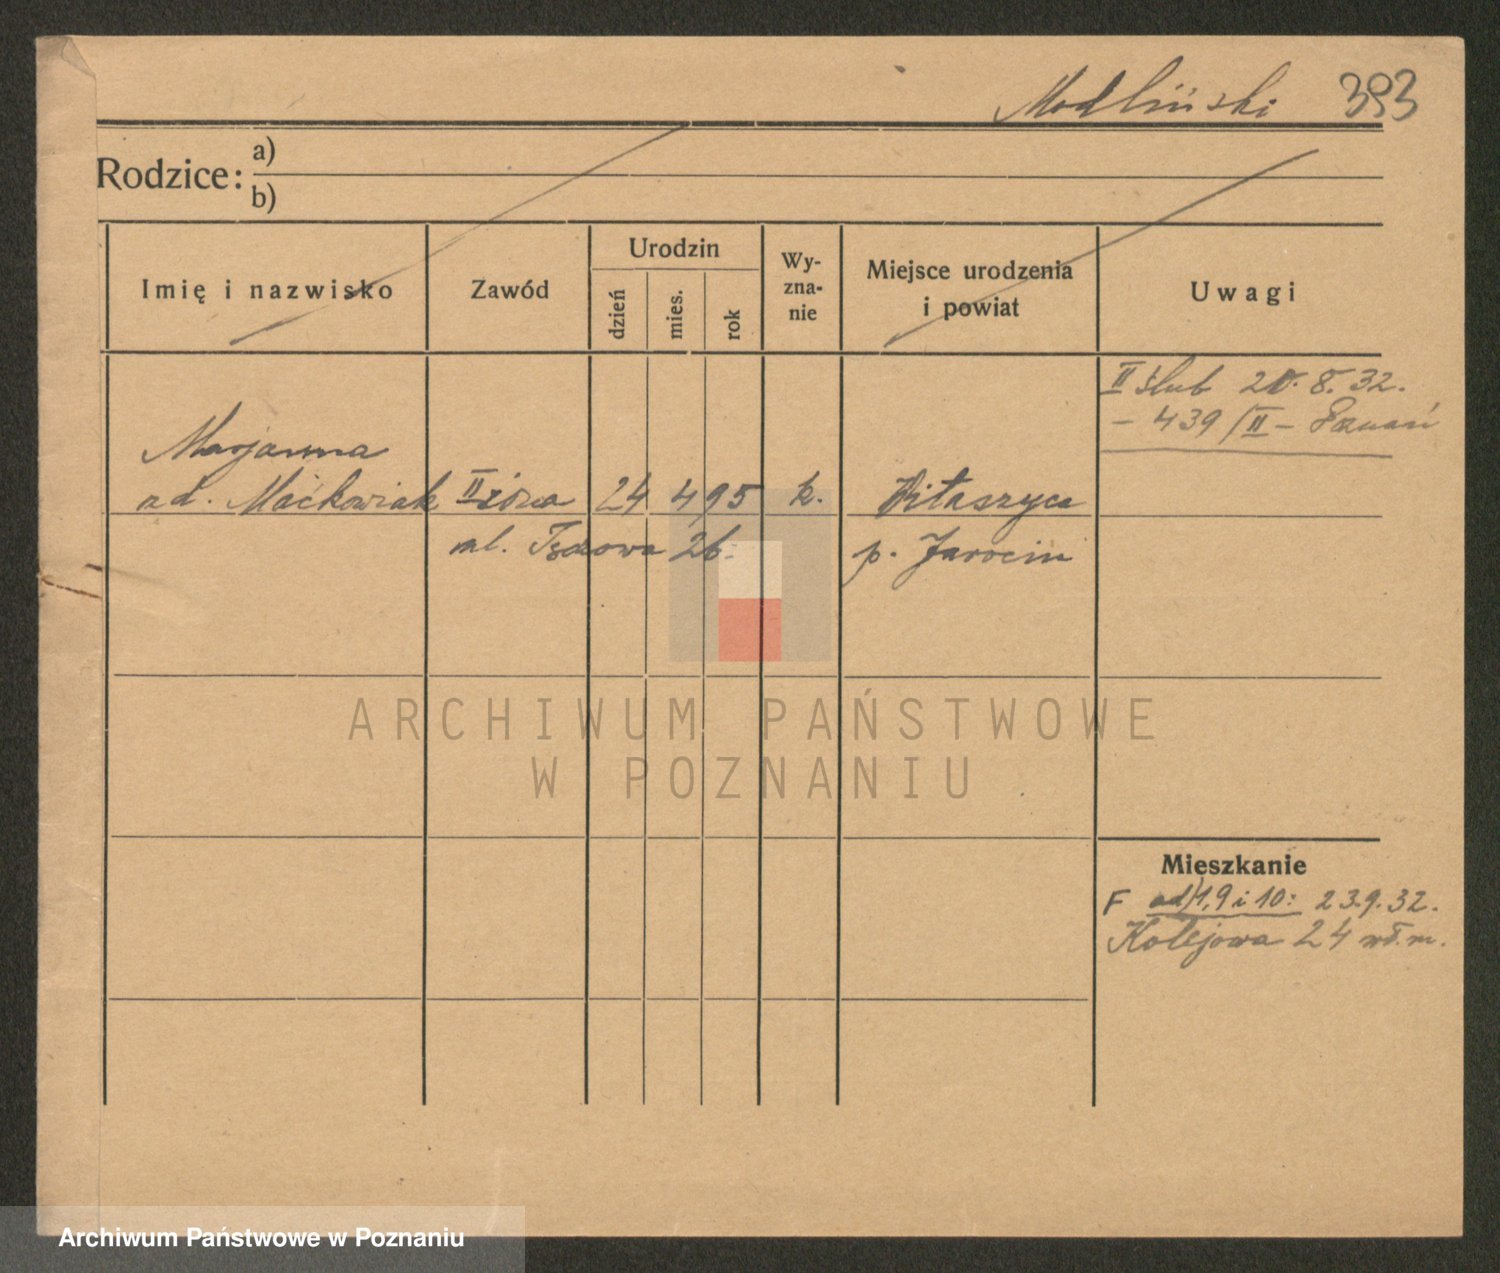 Modliński 393
Rodzice: a)
b)
Imię i nazwisko
Zawód
Urodzin
dzień
mies.
rok
Wy-
zna-
nie
Miejsce urodzenia
i powiat
Uwagi
II ślub 20. 8. 32.
- 439/II - Poznań
Marjanna
zd. Maćkowiak II żona 24 4 95 k. Witaszyce
26. p. Jarocin
ARCHIWUM PAŃSTWOWE
W POZNANIU
Mieszkanie
F ad)1,9 i 10: 23.9.32.
Kolejowa 24 wł. m.
Archiwum Państwowe w Poznaniu